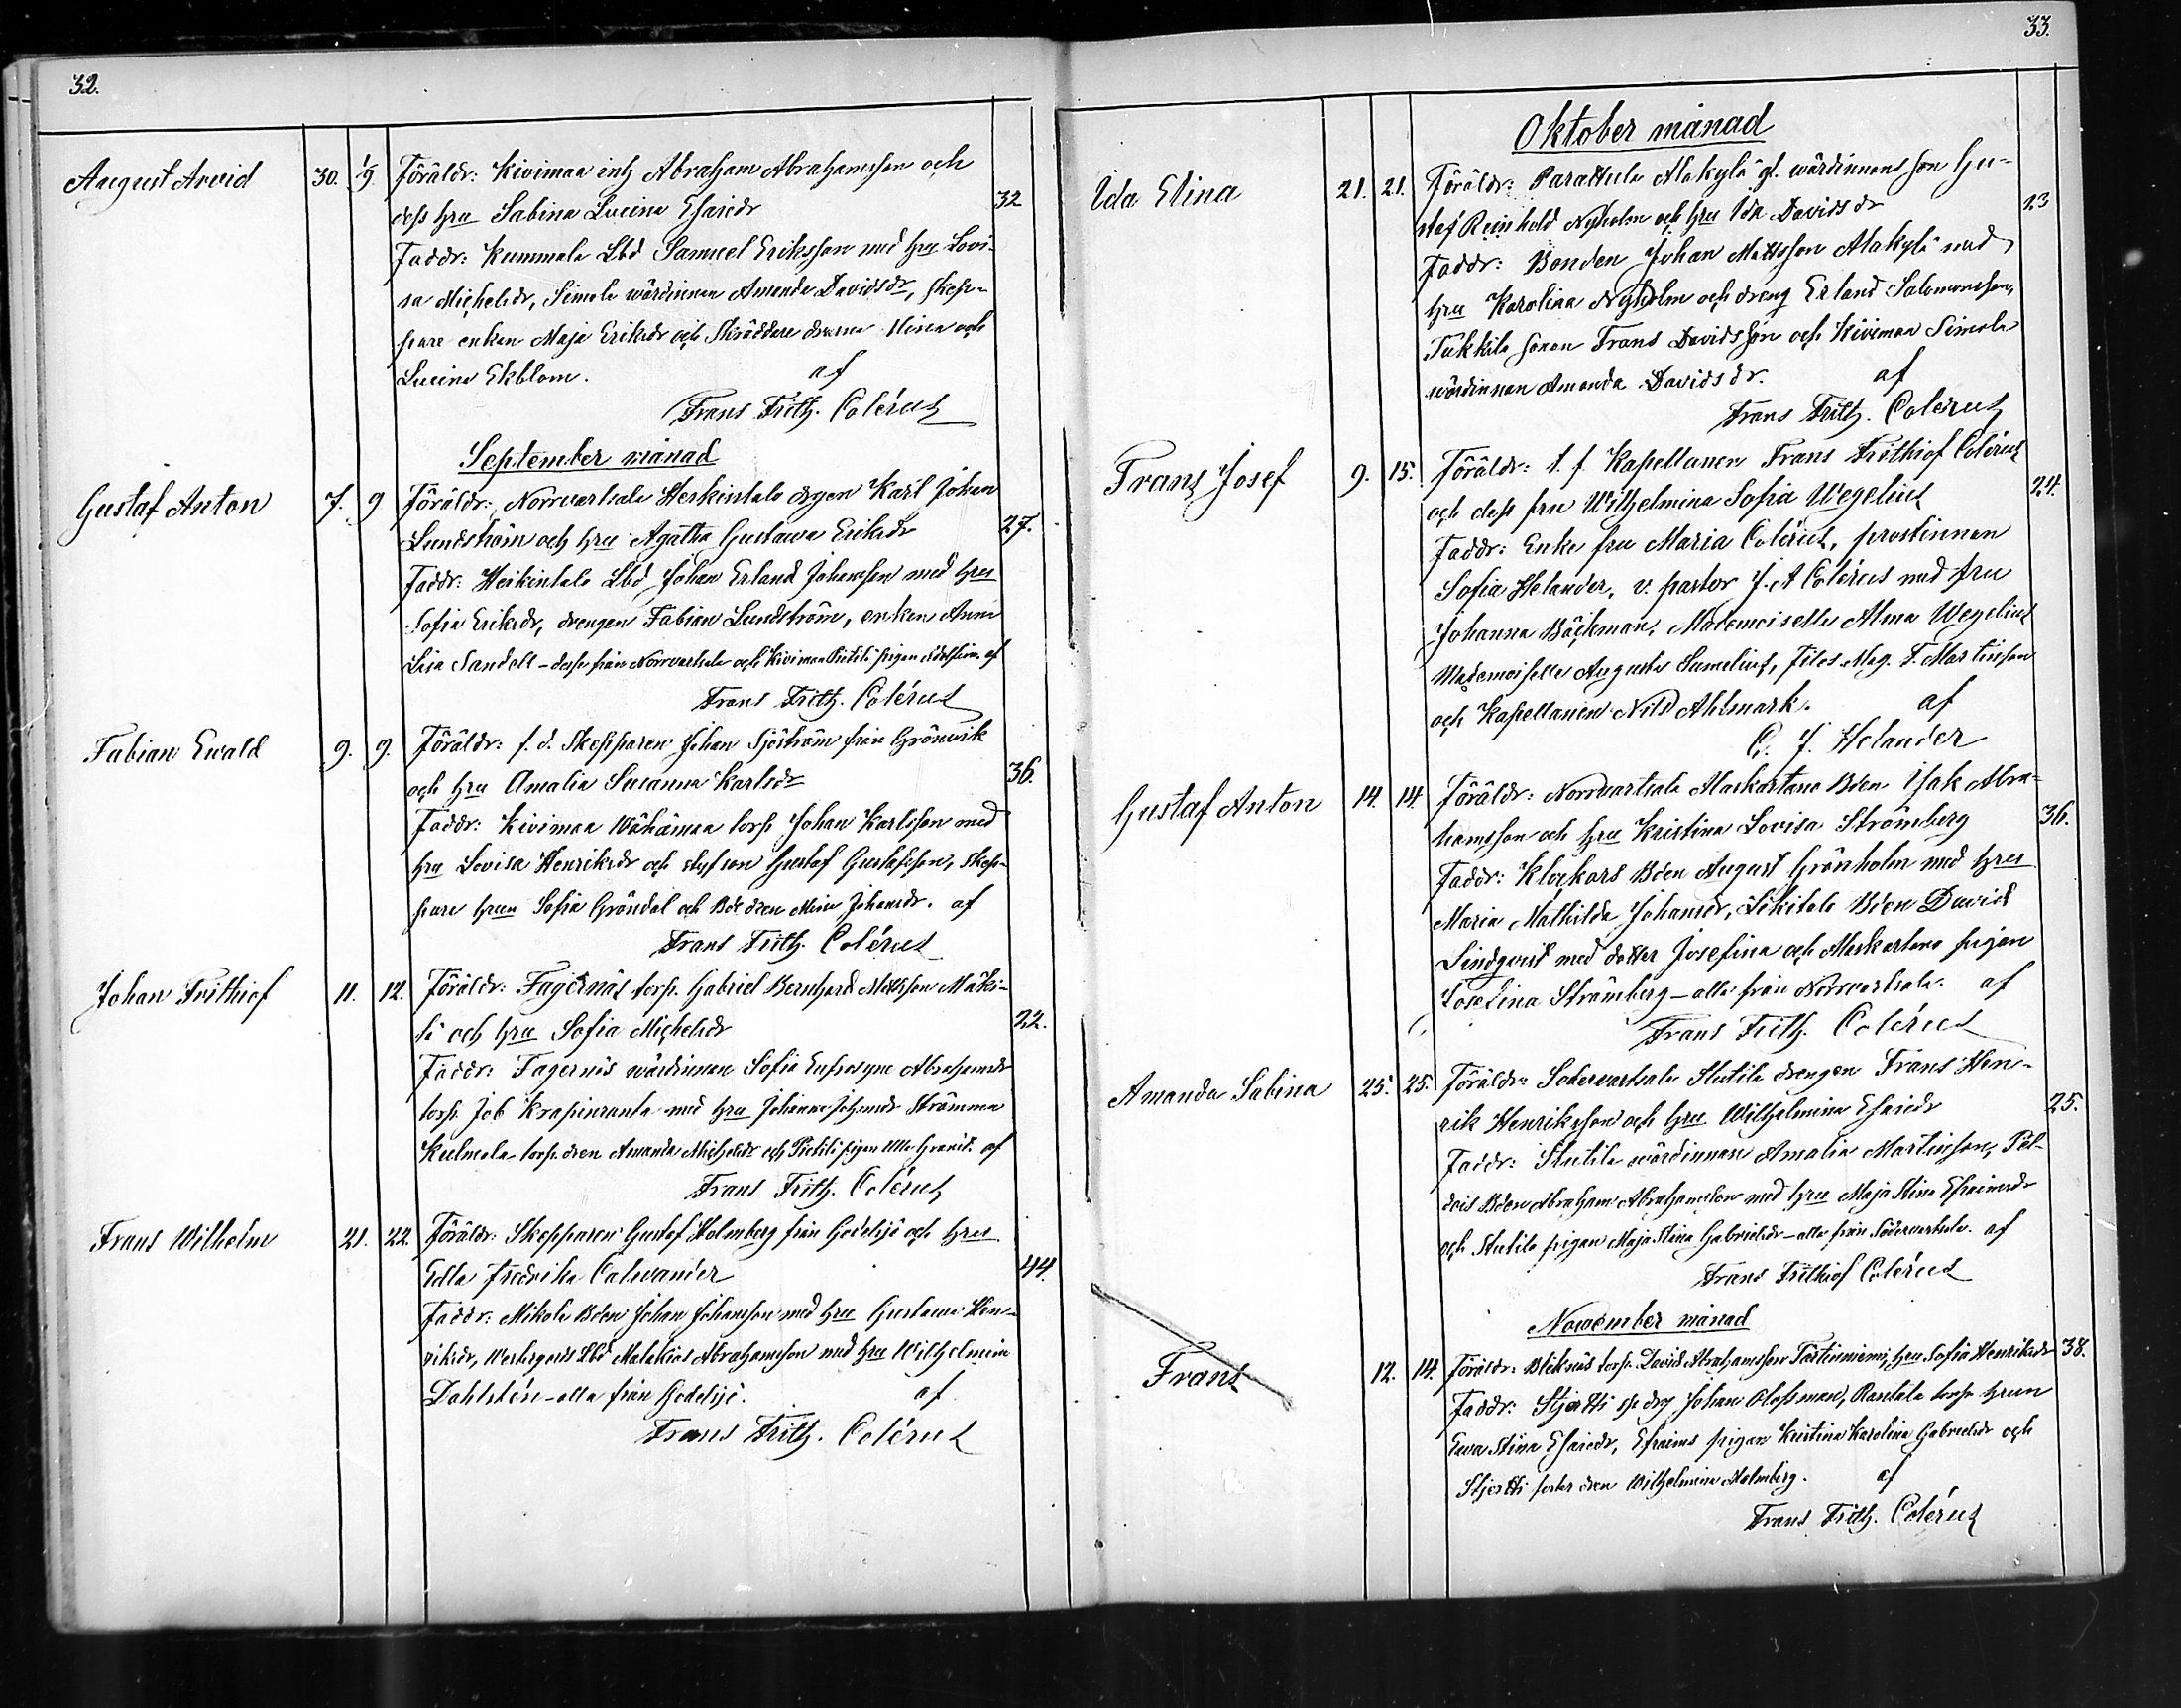 32.
August Arvid 30. 1/9. Föräldr: Kivimaa inh Abraham Abrahamsson och
dess hru Sabina Lucina Esaiedr 32
Faddr: Kummala Lbd Samuel Eriksson med hru Lovi-
sa Michelsdr, Simola wärdinnan Amanda Davidsdr, skep-
pare enkan Maja Eriksdr och Skräddare Mina och
Lucina Ekblom. af
Frans Frith. Colérus
September månad
Gustaf Anton 7. 9 Föräldr: Norrvartsala Heikintalo drgen Karl Johan
Lundström och hru Agatha Gustawa Eriksdr 27.
Faddr: Heikintalo Lbd Johan Erland Johansson med hru
Sofia Eriksdr, drengen Fabian Lundström, enkan Anna
Lisa Sandell - desse från Norrvartsala och Kivimaa Pietilä pigan af
Frans Frith. Colérus
Fabian Ewald 9. 9. Föräldr: f. d. Skepparen Johan Sjöström från Grönvik
och hru Amalia Susanna Karlsdr 36.
Faddr: Kivimaa Wähämaa torp. Johan Karlsson med
hru Lovisa Henriksdr och Gustaf Gustafsson, skep-
pare hrun Sofia Gröndal och Mina Johansdr. af
Frans Frith. Colérus
Johan Frithiof 11. 12. Föräldr: Fagernäs torp. Gabriel Bernhard Mattsson Mäki-
lä och hru Sofia Michelsdr 22.
Faddr: Fagernäs wärdinnan Sofia Eufrosyne Abrahamsdr
torp. Job Krapinranta med hru Johanna Johansdr Strömma
Kulmala torp. dren Amanda Michelsdr och Pietilä pigan Ulla Granit. af
Frans Frith. Colérus
Frans Wilhelm 21. 22. Föräldr: Skepparen Gustaf Holmberg från Godelsjö och hru
Edla Fredrika Calwander 44.
Faddr: Mikola Bden Johan Johansson med hru Gustawa Hen-
riksdr, Westergårds Lbd Malakias Abrahamsson med hru Wilhelmina
Dahlstén - alla från Godelsjö. af
Frans Frith. Colérus
33.
Oktober månad
Ida Elina 21. 21. Föräldr: Parattula Alakylä gl. wärdinnans son Gu-
staf Reinhold Nyholm och hru Ida Davidsdr 23
Faddr: Bonden Johan Mattsson Alakylä med
hru Karolina Nyholm och dreng Erland Salomonsson,
Tukkila sonen Frans Davidsson och Kivimaa Simola
wärdinnan Amanda Davidsdr. af
Frans Frith. Colérus
Frans Josef 9. 15. Föräldr: t. f. Kapellanen Frans Frithiof Colérus
och dess fru Wilhelmina Sofia Wegelius 24.
Faddr: Enke fru Maria Colérus, prostinnan
Sofia Helander, v. pastor J. A Colérus med fru
Johanna Bäckman, Mademoiselle Alma Wegelius
Mademoiselle Augusta Sumelius, Filos. Mag. F. Martinson
och Kapellanen Nils Ahlmark. af
C. J. Helander
Gustaf Anton 14. 14. Föräldr: Norrvartsala Alaskartano Bden Isak Abra-
hamsson och hru Kristina Lovisa Strömberg 36.
Faddr: Klockars Bden August Grönholm med hru
Maria Mathilda Johansdr, Bden David
Lindqvist med dotter Josefina och pigan
Josefina Strömberg - alla från Norrvartsala. af
Frans Frith. Colérus
Amanda Sabina 25. 25. Föräldr: Södervartsala Slutila drengen Frans Hen-
rik Henriksson och hru Wilhelmina Esaiedr 25.
Faddr: Slutila wärdinnan Amalia Martinson, Pel-
dois Bden Abraham Abrahamsson med hru Maja Stina Efraimsdr
och Slutila pigan Maja Stina Gabrielsdr - alla från Södervartsala. af
Frans Frithiof Colérus
November månad
Frans 12. 14. Föräldr: Bleknäs torp. David Abrahamsson hru Sofia Henriksdr 38.
Faddr: Stjertti Johan Glossman, Rantala torp. hrun
Ewa Stina Esaiedr, Efraims pigan Kristina Karolina Gabrielsdr och
Stjertti Wilhelmina Malmberg. af
Frans Frith. Colérus